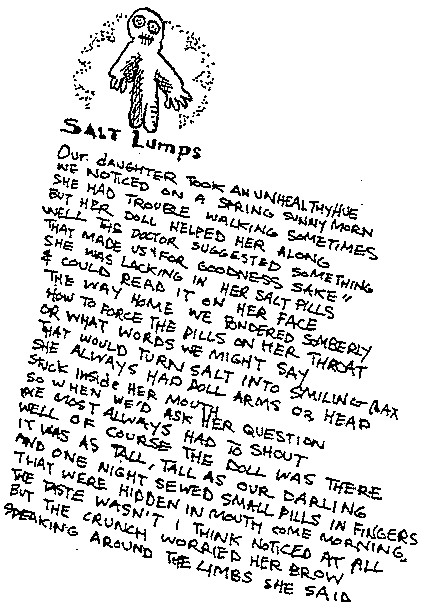 SALT Lumps
OUR dAUGHTER TOOK AN UNHEALTHY HUE
WE NOTICED ON A SPRING SUNNY MORN
SHE HAD TROUBLE WALKING SOMETIMES
BUT HER DOLL HELPED HER ALONG
WELL THE DOCTOR SUGGESTED SOMETHING
THAT MADE US "FOR GOODNESS SAKE"
SHE WAS LACKING IN HER SALT PILLS
& COULD READ IT ON HER FACE
THE WAY HOME WE PONDERED SOMBERLY
HOW TO FORCE THE PILLS ON HER THROAT
OR WHAT WORDS WE MIGHT SAY
THAT WOULD TURN SALT INTO SMILING
SHE ALWAYS HAD DOLL ARMS OR HEAD
STUCK INSidE HER MOUTH
SO WHEN WE'D ASK HER QUESTION
WE MOST ALWAYS HAD TO SHOUT
WELL OF COURSE THE DOLL WAS THERE
IT WAS AS TALL, TALL AS OUR DARLING
AND ONE NIGHT SEWED SMALL PILLS IN FINGERS
THAT WERE HIDDEN IN MOUTH COME MORNING.
THE TASTE WASN'T I THINK NOTICED AT ALL
BUT THE CRUNCH WORRIED HER BROW
SPEAKING AROUND THE LIMBS SHE SAID